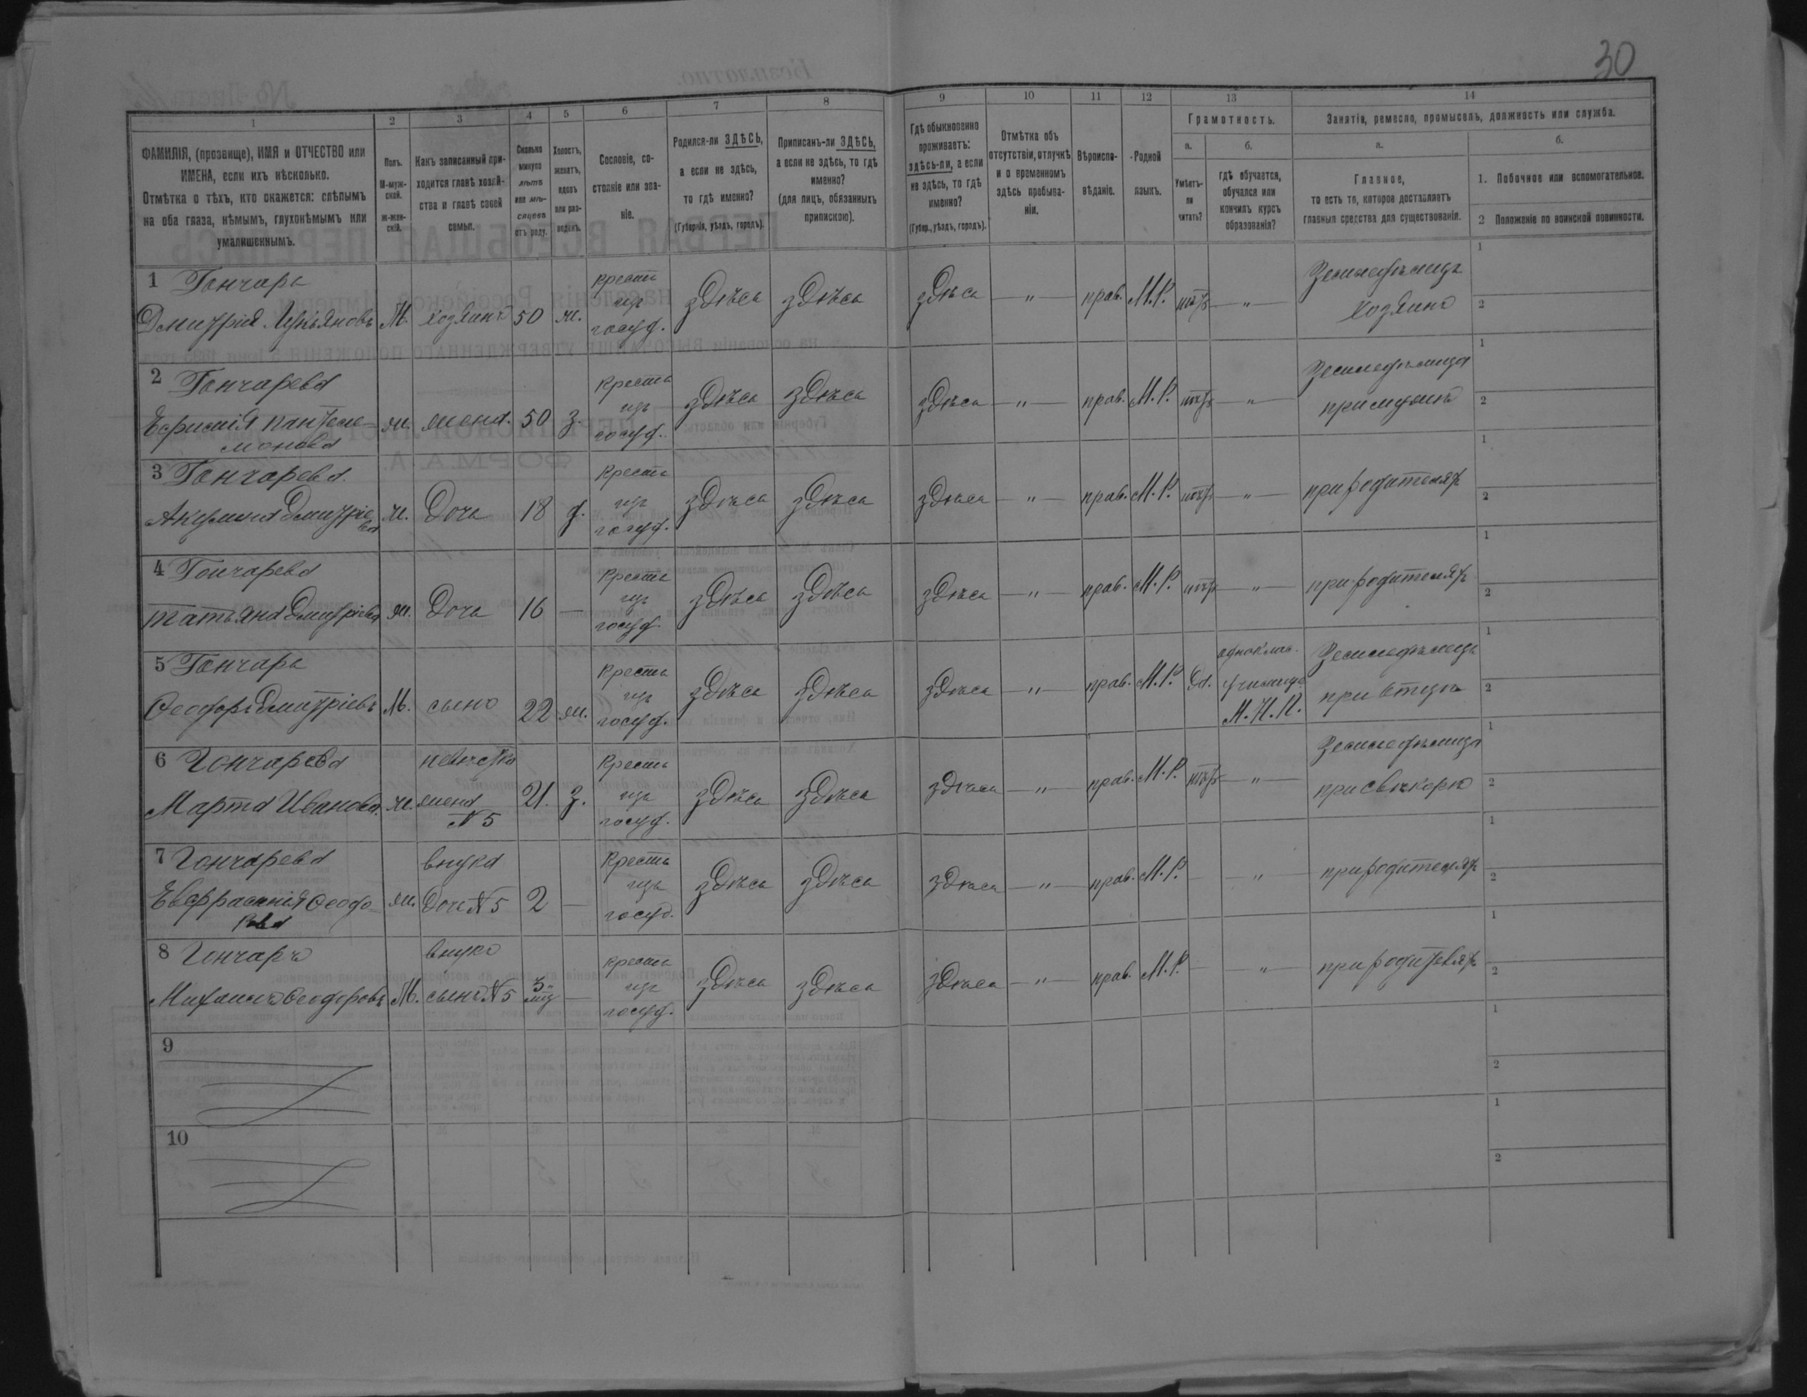 30
1 2 3 4 5 6 7 8 9 10 11 12 13 14
ФАМИЛІЯ, (прозвище), ИМЯ и ОТЧЕСТВО или
ИМЕНА, если ихъ нѣсколько.
Отмѣтка о тѣхъ, кто окажется: слѣпымъ
на оба глаза, нѣмымъ, глухонѣмымъ или
умалишеннымъ.
Полъ.
М-муж-
ской.
ж-жен-
скій.
Какъ записанный при-
ходится главѣ хозяй-
ства и главѣ своей
семьи.
Сколько
минуло
лѣтъ
или мѣ-
сяцевъ
отъ роду.
Холостъ,
женатъ,
вдовъ
или раз-
веденъ.
Сословіе, со-
стояніе или зва-
ніе.
Родился-ли ЗДѢСЬ,
а если не здѣсь,
то гдѣ именно?
(Губернія, уѣздъ, городъ).
Приписанъ-ли ЗДѢСЬ,
а если не здѣсь, то гдѣ
именно?
(для лицъ, обязанныхъ
припискою).
Гдѣ обыкновенно
проживаетъ:
здѣсь-ли, а если
не здѣсь, то гдѣ
именно?
(Губер., уѣздъ, городъ).
Отмѣтка объ
отсутствіи, отлучкѣ
и о временномъ
здѣсь пребыва-
ніи.
Вѣроиспо-
вѣданіе.
Родной
языкъ.
Грамотность.
а.
Умѣетъ-
ли
читать?
б.
гдѣ обучается,
обучался или
кончилъ курсъ
образованія?
Занятія, ремесло, промыселъ, должность или служба.
а.
Главное,
то есть то, которое доставляетъ
главныя средства для существованія.
б.
1. Побочное или вспомогательное.
2 Положеніе по воинской повинности.
1 Гончаръ
Дмитрій Лукьяновъ М. хозяинъ 50 ж. Крестъ изъ госуд. здѣсь здѣсь здѣсь — " — прав. М.Р. нѣтъ — " — Земледѣлецъ хозяинъ 1 2
2 Гончарева
Ефимія Пантеле-
монова ж. жена. 50 з. Крестъ изъ госуд. здѣсь здѣсь здѣсь — " — прав. М.Р. нѣтъ — " — Земледѣлица при мужѣ 1 2
3 Гончарева
Акулина Дмитріе-
ва ж. дочь 18 д. Крестъ изъ госуд. здѣсь здѣсь здѣсь — " — прав. М.Р. нѣтъ — " — при родителяхъ 1 2
4 Гончарева
Татьяна Дмитріева ж. дочь 16 — Крестъ изъ госуд. здѣсь здѣсь здѣсь — " — прав. М.Р. нѣтъ — " — при родителяхъ 1 2
5 Гончаръ
Ѳеодоръ Дмитріевъ М. сынъ 22 ж. Крестъ изъ госуд. здѣсь здѣсь здѣсь — " — прав. М.Р. да. однокла. училище М.Н.П. Земледѣлецъ при отцѣ 1 2
6 Гончарева
Марта Иванова. ж. невестка жена №5 21. з. Крестъ изъ госуд. здѣсь здѣсь здѣсь — " — прав. М.Р. нѣтъ — " — Земледѣлица при свекорю 1 2
7 Гончарева
Евфрасинія Ѳеодо-
рова ж. внука дочь №5 2 — Крестъ изъ госуд. здѣсь здѣсь здѣсь — " — прав. М.Р. — " — при родителяхъ 1 2
8 Гончаръ
Михаилъ Ѳеодоровъ М. внукъ сынъ №5 3-мѣ — крестъ изъ госуд. здѣсь здѣсь здѣсь — " — прав. М.Р. — " — при родителяхъ 1 2
9 1 2
10 1 2